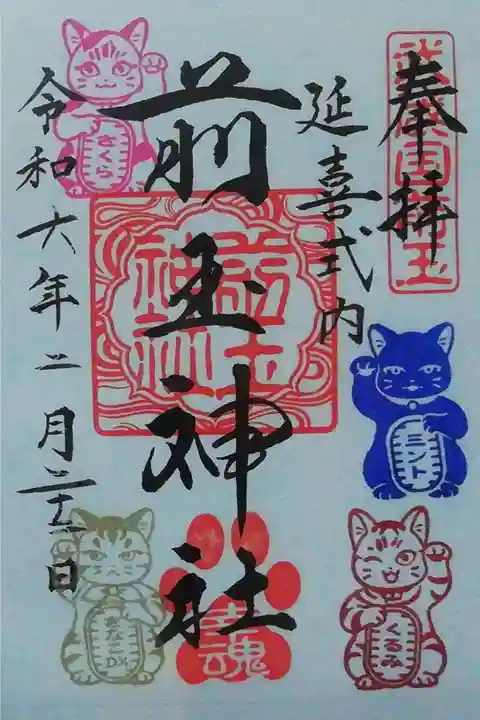 奉拝
武蔵国埼玉
延喜式内
前玉神社
前玉神社
令和六年二月二十二日
さくら
ミント
きなこDX
くるみ
幸魂